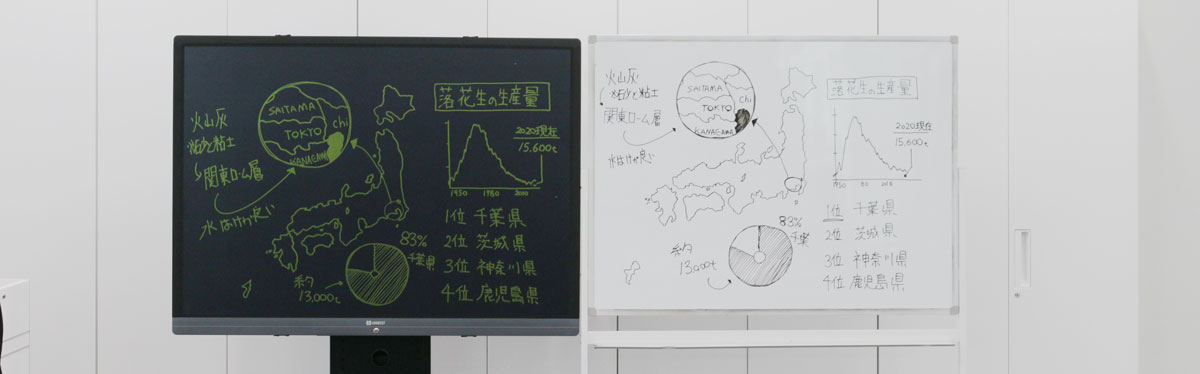 火山灰
粘砂と粘土
関東ローム層
水はけが良い
SAITAMA
TOKYO
Chi
KANAGAWA
落花生の生産量
2020現在
15,600t
1950 1980 2000
1位 千葉県
2位 茨城県
3位 神奈川県
4位 鹿児島県
83%
千葉県
約
13,000t
火山灰
粘砂と粘土
関東ローム層
水はけが良い
SAITAMA
TOKYO
Chi
KANAGAWA
落花生の生産量
2020現在
15,600t
1位 千葉県
2位 茨城県
3位 神奈川県
4位 鹿児島県
83%
千葉
約
13,000t